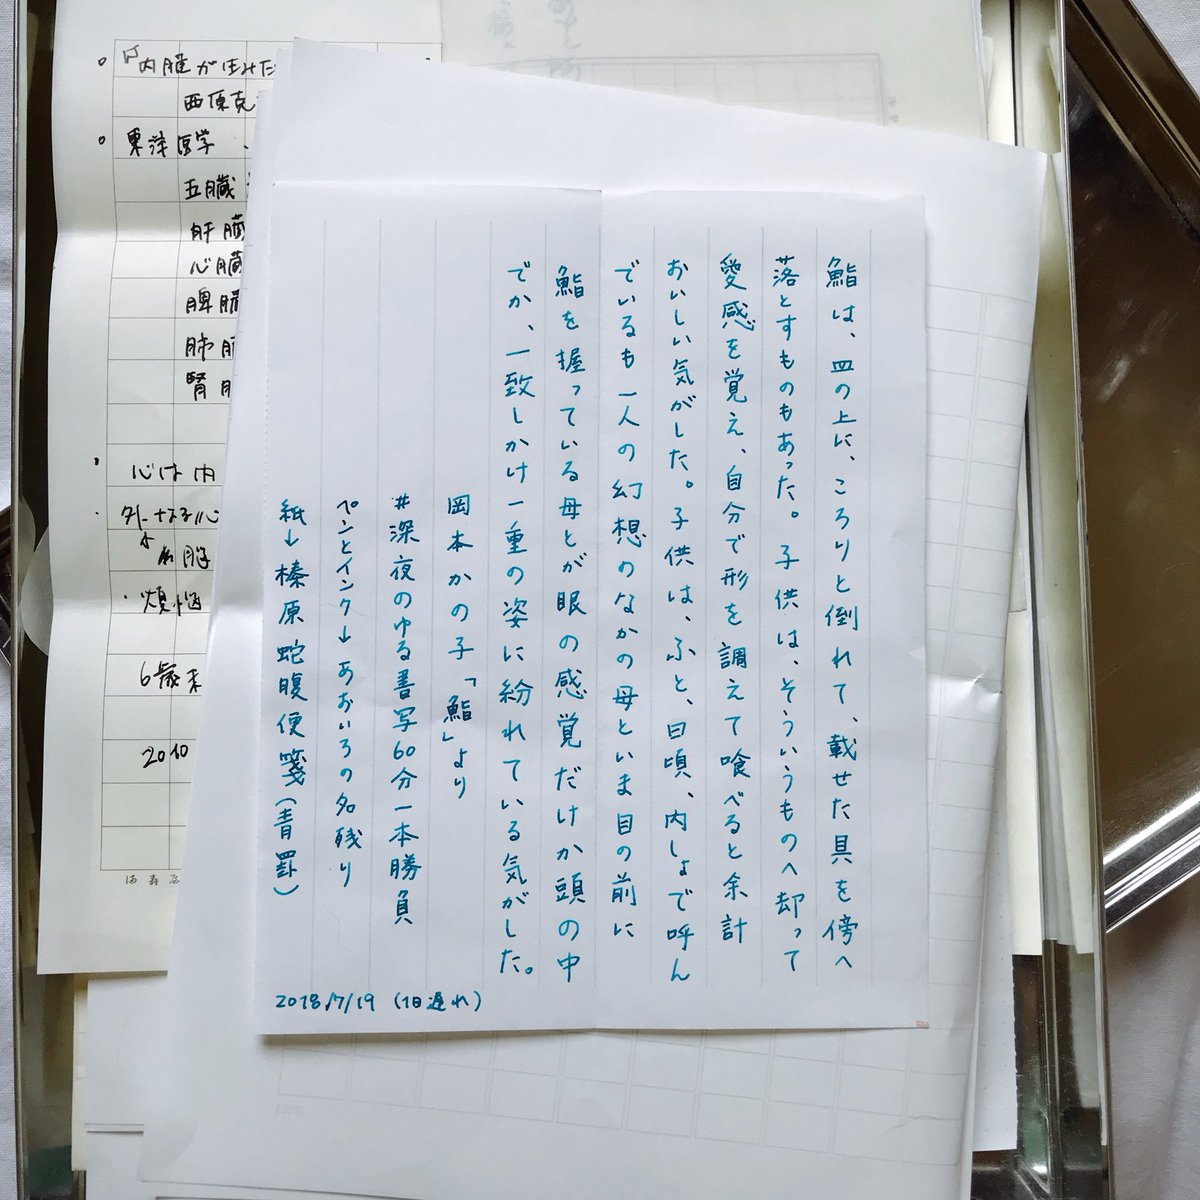 鮨は、皿の上に、ころりと倒れて、載せた具を傍へ
落とすものもあった。子供は、そういうものへ却って
愛感を覚え、自分で形を調えて喰べると余計
おいしい気がした。子供は、ふと、日頃、内しょで呼ん
でいるも一人の幻想のなかの母といま目の前に
鮨を握っている母とが眼の感覚だけか頭の中
でか、一致しかけ一重の姿に紛れている気がした。
岡本かの子「鮨」より
#深夜のゆる書写60分一本勝負
ペンとインク↓あおいろの名残り
紙↓榛原蛇腹便箋（青罫）
2018/7/19（1日遅れ）
。「内臓が生みた
西原克
。東洋医学
五臓
肝臓
心臓
脾臓
肺
腎
心は内
外なる心
脳
・煩悩
6歳未
2010